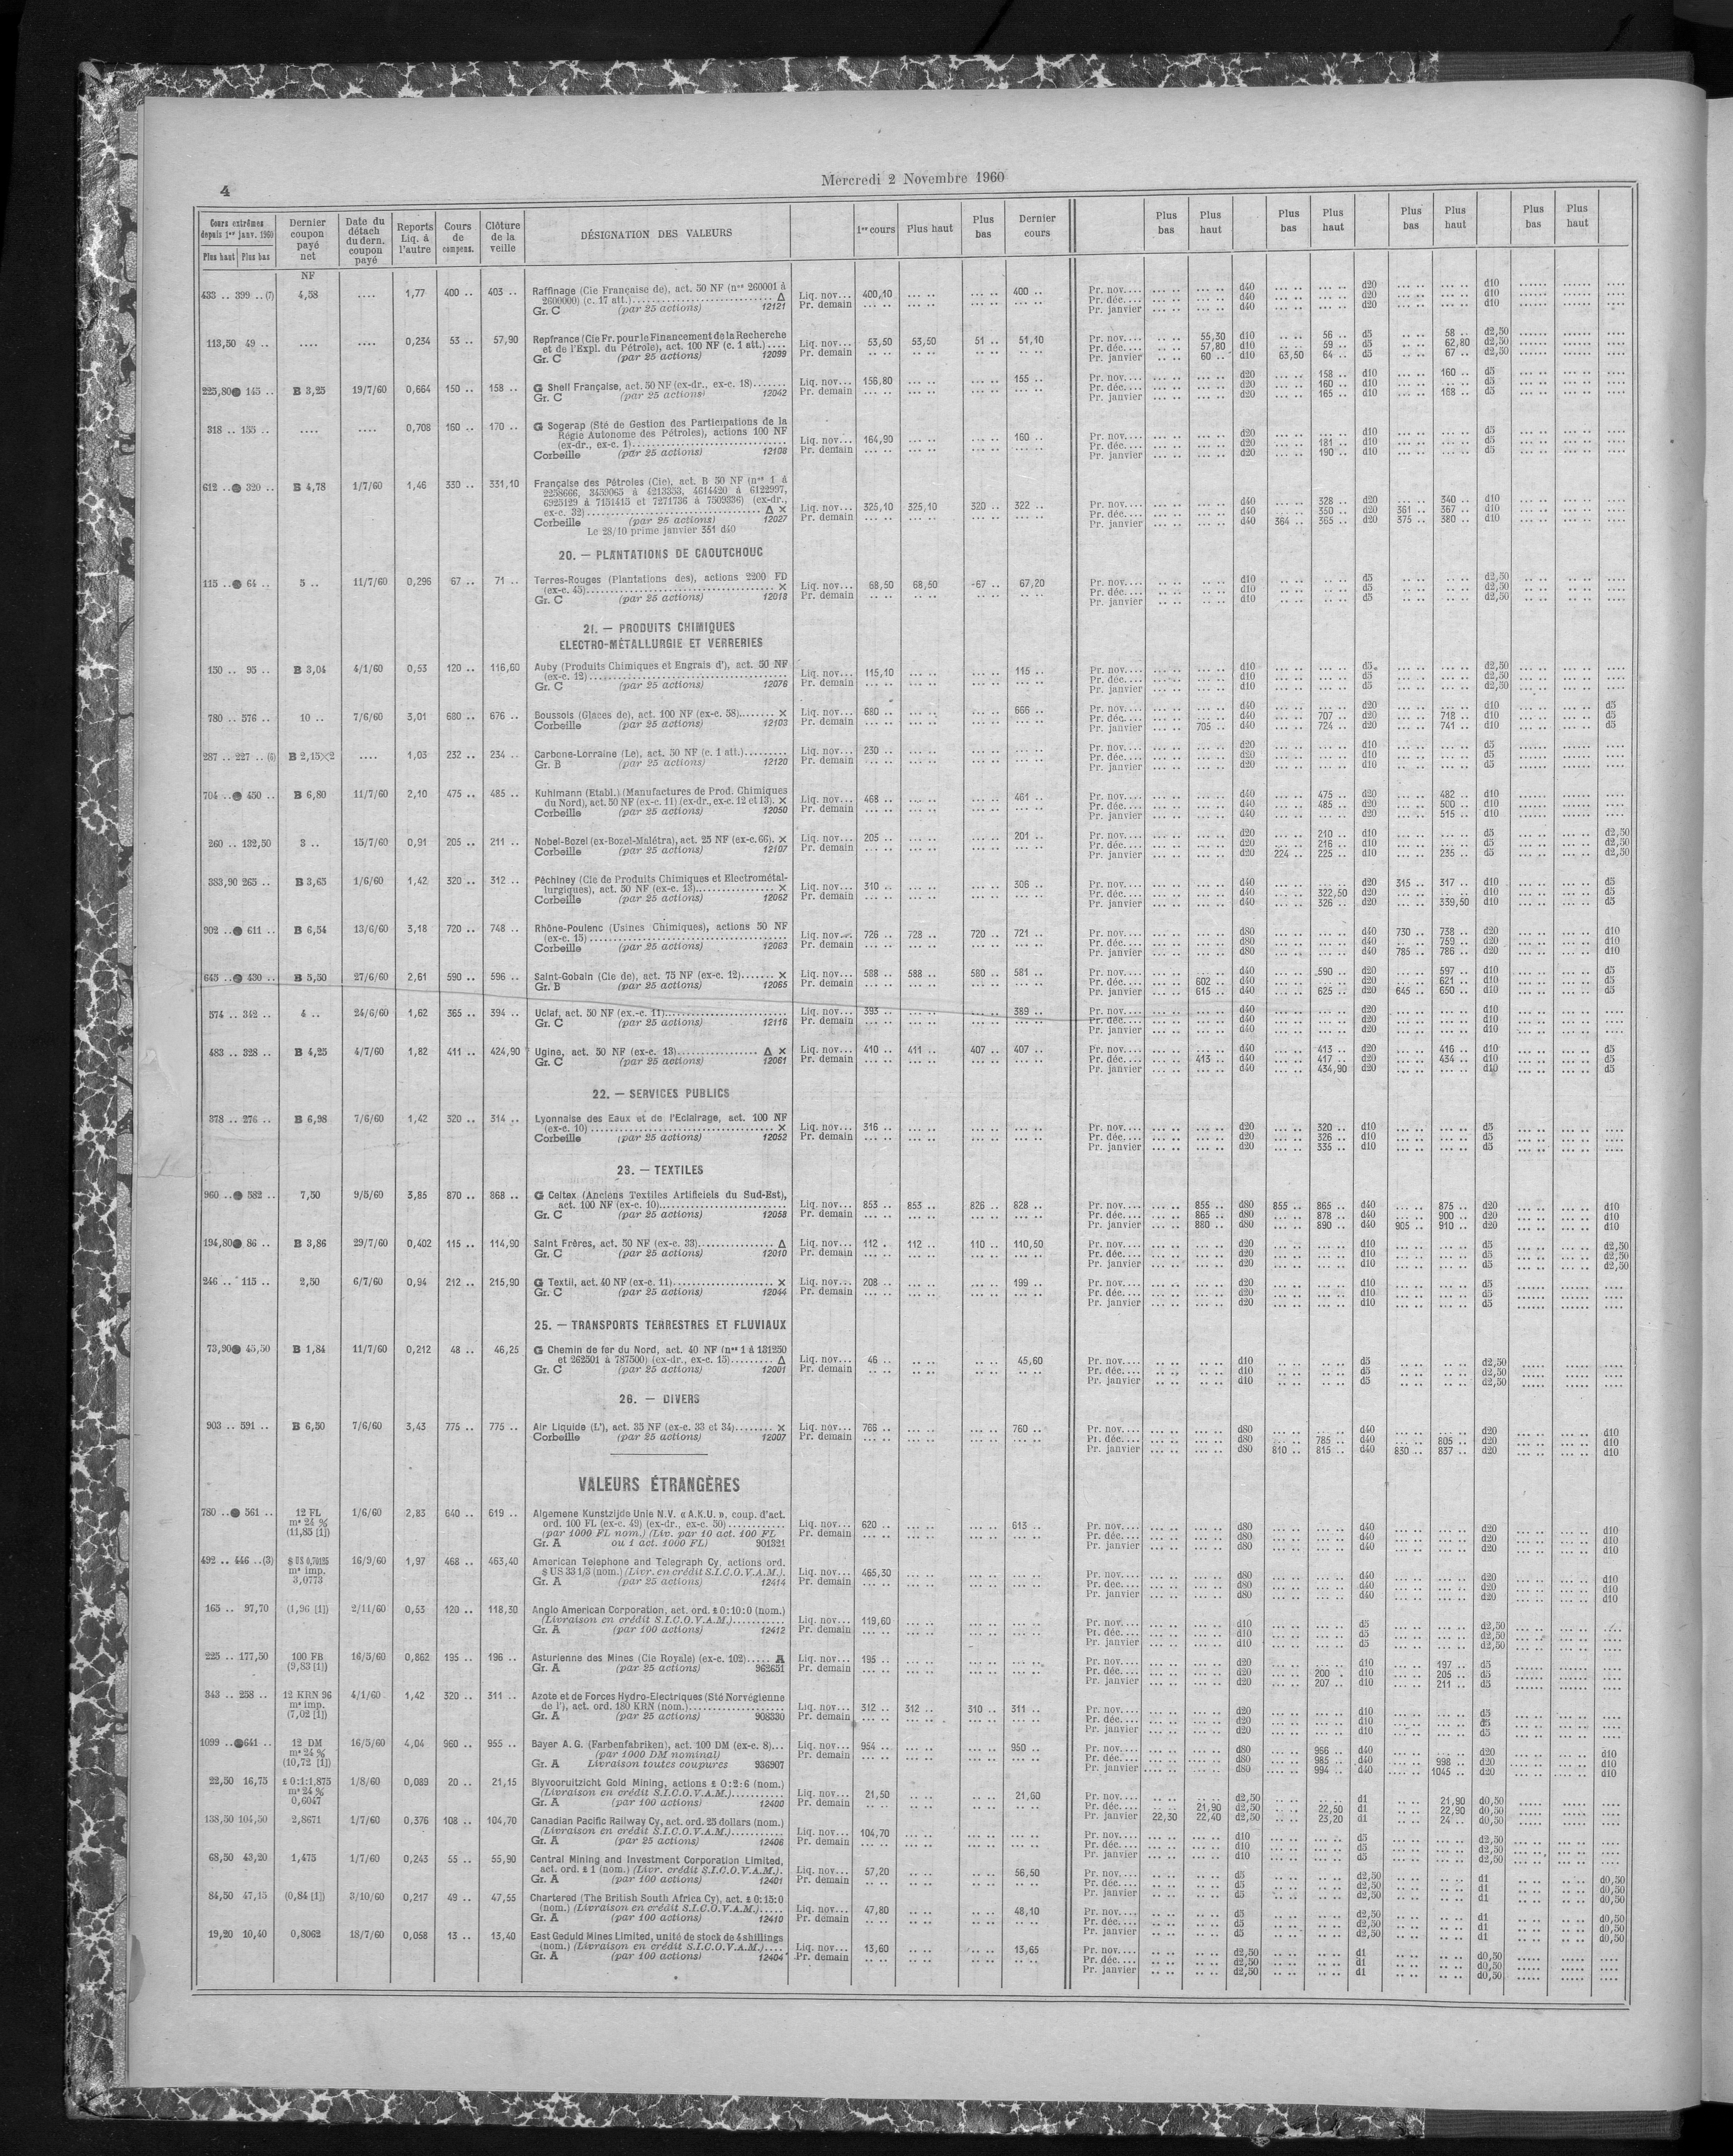 4
Mercredi 2 Novembre 1960
Cours extrêmes depuis 1er janv. 1960 Plus haut Plus bas | Dernier coupon payé net | Date du détach du dern. coupon payé | Reports Liq. à l'autre | Cours de compens. | Clôture de la veille | DÉSIGNATION DES VALEURS | 1er cours | Plus haut | Plus bas | Dernier cours | Plus bas | Plus haut | Plus bas | Plus haut | Plus bas | Plus haut | Plus bas | Plus haut
NF
433 .. 399 .. (7) 4,58 .... 1,77 400 .. 403 .. Raffinage (Cie Française de), act. 50 NF (nos 260001 à
2600000) (c. 17 att.) Δ Liq. nov... 400,10 400 .. Pr. nov.... d40 d20 d10
Gr. C (par 25 actions) 12121 Pr. demain Pr. déc.... d40 d20 d10
Pr. janvier d40 d20 d10
113,50 49 .. .... .... 0,234 53 .. 57,90 Repfrance (Cie Fr. pour le Financement de la Recherche
et de l'Expl. du Pétrole), act. 100 NF (c. 1 att.) Liq. nov... 53,50 53,50 51 .. 51,10 Pr. nov.... 55,30 d10 56 .. d5 58 .. d2,50
Gr. C (par 25 actions) 12099 Pr. demain Pr. déc.... 57,80 d10 59 .. d5 62,80 d2,50
Pr. janvier 60 .. d10 63,50 64 .. d5 67 .. d2,50
225,80● 145 .. B 3,25 19/7/60 0,664 150 .. 158 .. G Shell Française, act. 50 NF (ex-dr., ex-c. 18) Liq. nov... 156,80 155 .. Pr. nov.... d20 158 .. d10 160 .. d5
Gr. C (par 25 actions) 12042 Pr. demain Pr. déc.... d20 160 .. d10 d5
Pr. janvier d20 165 .. d10 168 .. d5
318 .. 155 .. .... .... 0,708 160 .. 170 .. G Sogerap (Sté de Gestion des Participations de la
Régie Autonome des Pétroles), actions 100 NF
(ex-dr., ex-c. 1) Liq. nov... 164,90 160 .. Pr. nov.... d20 d10 d5
Corbeille (par 25 actions) 12108 Pr. demain Pr. déc.... d20 181 .. d10 d5
Pr. janvier d20 190 .. d10 d5
612 ..● 320 .. B 4,78 1/7/60 1,46 330 .. 331,10 Française des Pétroles (Cie), act. B 50 NF (nos 1 à
2258666, 3459065 à 4213353, 4614420 à 6122997,
6925129 à 7151415 et 7271736 à 7509336) (ex-dr.,
ex-c. 32) Δ × Liq. nov... 325,10 325,10 320 .. 322 .. Pr. nov.... d40 328 .. d20 340 .. d10
Corbeille (par 25 actions) 12027 Pr. demain Pr. déc.... d40 350 .. d20 361 .. 367 .. d10
Le 28/10 prime janvier 351 d40 Pr. janvier d40 364 .. 365 .. d20 375 .. 380 .. d10
20. — PLANTATIONS DE CAOUTCHOUC
115 ..● 64 .. 5 .. 11/7/60 0,296 67 .. 71 .. Terres-Rouges (Plantations des), actions 2200 FD
(ex-c. 45) × Liq. nov... 68,50 68,50 67 .. 67,20 Pr. nov.... d10 d5 d2,50
Gr. C (par 25 actions) 12018 Pr. demain Pr. déc.... d10 d5 d2,50
Pr. janvier d10 d5 d2,50
21. — PRODUITS CHIMIQUES
ELECTRO-MÉTALLURGIE ET VERRERIES
150 .. 95 .. B 3,04 4/1/60 0,53 120 .. 116,60 Auby (Produits Chimiques et Engrais d'), act. 50 NF
(ex-c. 12) Liq. nov... 115,10 115 .. Pr. nov.... d10 d5 d2,50
Gr. C (par 25 actions) 12076 Pr. demain Pr. déc.... d10 d5 d2,50
Pr. janvier d10 d5 d2,50
780 .. 576 .. 10 .. 7/6/60 3,01 680 .. 676 .. Boussois (Glaces de), act. 100 NF (ex-c. 58) × Liq. nov... 680 .. 666 .. Pr. nov.... d40 d20 d10 d5
Corbeille (par 25 actions) 12103 Pr. demain Pr. déc.... d40 707 .. d20 718 .. d10 d5
Pr. janvier 705 .. d40 724 .. d20 741 .. d10 d5
287 .. 227 .. (6) B 2,15×2 .... 1,03 232 .. 234 .. Carbone-Lorraine (Le), act. 50 NF (c. 1 att.) Liq. nov... 230 .. Pr. nov.... d20 d10 d5
Gr. B (par 25 actions) 12120 Pr. demain Pr. déc.... d20 d10 d5
Pr. janvier d20 d10 d5
704 ..● 450 .. B 6,80 11/7/60 2,10 475 .. 485 .. Kuhlmann (Etabl.) (Manufactures de Prod. Chimiques
du Nord), act. 50 NF (ex-c. 11) (ex-dr., ex-c. 12 et 13). × Liq. nov... 468 .. 461 .. Pr. nov.... d40 475 .. d20 482 .. d10
Corbeille (par 25 actions) 12050 Pr. demain Pr. déc.... d40 485 .. d20 500 .. d10
Pr. janvier d40 d20 515 .. d10
260 .. 132,50 3 .. 15/7/60 0,91 205 .. 211 .. Nobel-Bozel (ex-Bozel-Malétra), act. 25 NF (ex-c. 66). × Liq. nov... 205 .. 201 .. Pr. nov.... d20 210 .. d10 d5 d2,50
Corbeille (par 25 actions) 12107 Pr. demain Pr. déc.... d20 216 .. d10 d5 d2,50
Pr. janvier d20 224 .. 225 .. d10 235 .. d5 d2,50
383,90 265 .. B 3,65 1/6/60 1,42 320 .. 312 .. Péchiney (Cie de Produits Chimiques et Electrométal-
lurgiques), act. 50 NF (ex-c. 13) × Liq. nov... 310 .. 306 .. Pr. nov.... d40 d20 315 .. 317 .. d10 d5
Corbeille (par 25 actions) 12062 Pr. demain Pr. déc.... d40 322,50 d20 d10 d5
Pr. janvier d40 326 .. d20 339,50 d10 d5
902 ..● 611 .. B 6,54 13/6/60 3,18 720 .. 748 .. Rhône-Poulenc (Usines Chimiques), actions 50 NF
(ex-c. 15) Liq. nov... 726 .. 728 .. 720 .. 721 .. Pr. nov.... d80 d40 730 .. 738 .. d20 d10
Corbeille (par 25 actions) 12063 Pr. demain Pr. déc.... d80 d40 759 .. d20 d10
Pr. janvier d80 d40 785 .. 786 .. d20 d10
645 ..● 430 .. B 5,50 27/6/60 2,61 590 .. 596 .. Saint-Gobain (Cie de), act. 75 NF (ex-c. 12) × Liq. nov... 588 .. 588 .. 580 .. 581 .. Pr. nov.... d40 590 .. d20 597 .. d10 d5
Gr. B (par 25 actions) 12065 Pr. demain Pr. déc.... 602 .. d40 d20 621 .. d10 d5
Pr. janvier 615 .. d40 625 .. d20 645 .. 650 .. d10 d5
574 .. 342 .. 4 .. 24/6/60 1,62 365 .. 394 .. Uclaf, act. 50 NF (ex.-c. 11) Liq. nov... 393 .. 389 .. Pr. nov.... d40 d20 d10
Gr. C (par 25 actions) 12116 Pr. demain Pr. déc.... d40 d20 d10
Pr. janvier d40 d20 d10
483 .. 328 .. B 4,25 4/7/60 1,82 411 .. 424,90 Ugine, act. 50 NF (ex-c. 13) Δ × Liq. nov... 410 .. 411 .. 407 .. 407 .. Pr. nov.... d40 413 .. d20 416 .. d10 d5
Gr. C (par 25 actions) 12061 Pr. demain Pr. déc.... 413 .. d40 417 .. d20 434 .. d10 d5
Pr. janvier d40 434,90 d20 d10 d5
22. — SERVICES PUBLICS
378 .. 276 .. B 6,98 7/6/60 1,42 320 .. 314 .. Lyonnaise des Eaux et de l'Eclairage, act. 100 NF
(ex-c. 10) × Liq. nov... 316 .. Pr. nov.... d20 320 .. d10 d5
Corbeille (par 25 actions) 12052 Pr. demain Pr. déc.... d20 326 .. d10 d5
Pr. janvier d20 335 .. d10 d5
23. — TEXTILES
960 ..● 582 .. 7,50 9/5/60 3,85 870 .. 868 .. G Celtex (Anciens Textiles Artificiels du Sud-Est),
act. 100 NF (ex-c. 10) Liq. nov... 853 .. 853 .. 826 .. 828 .. Pr. nov.... 855 .. d80 855 .. 865 .. d40 875 .. d20 d10
Gr. C (par 25 actions) 12058 Pr. demain Pr. déc.... 865 .. d80 878 .. d40 900 .. d20 d10
Pr. janvier 880 .. d80 890 .. d40 905 .. 910 .. d20 d10
194,80● 86 .. B 3,86 29/7/60 0,402 115 .. 114,90 Saint Frères, act. 50 NF (ex-c. 33) Δ Liq. nov... 112 .. 112 .. 110 .. 110,50 Pr. nov.... d20 d10 d5 d2,50
Gr. C (par 25 actions) 12010 Pr. demain Pr. déc.... d20 d10 d5 d2,50
Pr. janvier d20 d10 d5 d2,50
246 .. 115 .. 2,50 6/7/60 0,94 212 .. 215,90 G Textil, act. 40 NF (ex-c. 11) × Liq. nov... 208 .. 199 .. Pr. nov.... d20 d10 d5
Gr. C (par 25 actions) 12044 Pr. demain Pr. déc.... d20 d10 d5
Pr. janvier d20 d10 d5
25. — TRANSPORTS TERRESTRES ET FLUVIAUX
73,90● 45,50 B 1,84 11/7/60 0,212 48 .. 46,25 G Chemin de fer du Nord, act. 40 NF (nos 1 à 131250
et 262501 à 787500) (ex-dr., ex-c. 15) Δ Liq. nov... 46 .. 45,60 Pr. nov.... d10 d5 d2,50
Gr. C (par 25 actions) 12001 Pr. demain Pr. déc.... d10 d5 d2,50
Pr. janvier d10 d5 d2,50
26. — DIVERS
903 .. 591 .. B 6,50 7/6/60 3,43 775 .. 775 .. Air Liquide (L'), act. 35 NF (ex-c. 33 et 34) × Liq. nov... 766 .. 760 .. Pr. nov.... d80 d40 d20 d10
Corbeille (par 25 actions) 12007 Pr. demain Pr. déc.... d80 785 .. d40 805 .. d20 d10
Pr. janvier d80 810 .. 815 .. d40 830 .. 837 .. d20 d10
VALEURS ÉTRANGÈRES
780 ..● 561 .. 12 FL 1/6/60 2,83 640 .. 619 .. Algemene Kunstzijde Unie N.V. « A.K.U. », coup. d'act.
ms 24 % ord. 100 FL (ex-c. 49) (ex-dr., ex-c. 50) Liq. nov... 620 .. 613 .. Pr. nov.... d80 d40 d20 d10
(11,85 [1]) (par 1000 FL nom.) (Liv. par 10 act. 100 FL Pr. demain Pr. déc.... d80 d40 d20 d10
Gr. A ou 1 act. 1000 FL) 901321 Pr. janvier d80 d40 d20 d10
492 .. 446 ..(3) $ US 0,70125 16/9/60 1,97 468 .. 463,40 American Telephone and Telegraph Cy, actions ord.
ms imp. $ US 33 1/3 (nom.) (Livr. en crédit S.I.C.O.V.A.M.). Liq. nov... 465,30 Pr. nov.... d80 d40 d20 d10
3,0773 Gr. A (par 25 actions) 12414 Pr. demain Pr. déc.... d80 d40 d20 d10
Pr. janvier d80 d40 d20 d10
165 .. 97,70 (1,96 [1]) 2/11/60 0,53 120 .. 118,30 Anglo American Corporation, act. ord. £ 0:10:0 (nom.)
(Livraison en crédit S.I.C.O.V.A.M.) Liq. nov... 119,60 Pr. nov.... d10 d5 d2,50
Gr. A (par 100 actions) 12412 Pr. demain Pr. déc.... d10 d5 d2,50
Pr. janvier d10 d5 d2,50
225 .. 177,50 100 FB 16/5/60 0,862 195 .. 196 .. Asturienne des Mines (Cie Royale) (ex-c. 102) Liq. nov... 195 .. Pr. nov.... d20 d10 197 .. d5
(9,83 [1]) Gr. A (par 25 actions) 962651 Pr. demain Pr. déc.... d20 200 .. d10 205 .. d5
Pr. janvier d20 207 .. d10 211 .. d5
343 .. 258 .. 12 KRN 96 4/1/60 1,42 320 .. 311 .. Azote et de Forces Hydro-Electriques (Sté Norvégienne
ms imp. de l'), act. ord. 180 KRN (nom.) Liq. nov... 312 .. 312 .. 310 .. 311 .. Pr. nov.... d20 d10 d5
(7,02 [1]) Gr. A (par 25 actions) 908330 Pr. demain Pr. déc.... d20 d10 d5
Pr. janvier d20 d10 d5
1099 ..●641 .. 12 DM 16/5/60 4,04 960 .. 955 .. Bayer A.G. (Farbenfabriken), act. 100 DM (ex-c. 8)... Liq. nov... 954 .. 950 .. Pr. nov.... d80 966 .. d40 d20 d10
ms 24 % (par 1000 DM nominal) Pr. demain Pr. déc.... d80 985 .. d40 998 .. d20 d10
(10,72 [1]) Gr. A Livraison toutes coupures 936907 Pr. janvier d80 994 .. d40 1045 .. d20 d10
22,50 16,75 £ 0:1:1,875 1/8/60 0,089 20 .. 21,15 Blyvooruitzicht Gold Mining, actions £ 0:2:6 (nom.)
ms 24 % (Livraison en crédit S.I.C.O.V.A.M.) Liq. nov... 21,50 21,60 Pr. nov.... d2,50 d1 21,90 d0,50
0,6047 Gr. A (par 100 actions) 12400 Pr. demain Pr. déc.... 21,90 d2,50 22,50 d1 22,90 d0,50
Pr. janvier 22,30 22,40 d2,50 23,20 d1 24 .. d0,50
138,50 104,50 2,8671 1/7/60 0,376 108 .. 104,70 Canadian Pacific Railway Cy, act. ord. 25 dollars (nom.)
(Livraison en crédit S.I.C.O.V.A.M.) Liq. nov... 104,70 Pr. nov.... d10 d5 d2,50
Gr. A (par 25 actions) 12406 Pr. demain Pr. déc.... d10 d5 d2,50
Pr. janvier d10 d5 d2,50
68,50 43,20 1,475 1/7/60 0,243 55 .. 55,90 Central Mining and Investment Corporation Limited,
act. ord. £ 1 (nom.) (Livr. crédit S.I.C.O.V.A.M.). Liq. nov... 57,20 56,50 Pr. nov.... d5 d2,50 d1 d0,50
Gr. A (par 100 actions) 12401 Pr. demain Pr. déc.... d5 d2,50 d1 d0,50
Pr. janvier d5 d2,50 d1 d0,50
84,50 47,15 (0,84 [1]) 3/10/60 0,217 49 .. 47,55 Chartered (The British South Africa Cy), act. £ 0:15:0
(nom.) (Livraison en crédit S.I.C.O.V.A.M.) Liq. nov... 47,80 48,10 Pr. nov.... d5 d2,50 d1 d0,50
Gr. A (par 100 actions) 12410 Pr. demain Pr. déc.... d5 d2,50 d1 d0,50
Pr. janvier d5 d2,50 d1 d0,50
19,20 10,40 0,8062 18/7/60 0,058 13 .. 13,40 East Geduld Mines Limited, unité de stock de 4 shillings
(nom.) (Livraison en crédit S.I.C.O.V.A.M.) Liq. nov... 13,60 13,65 Pr. nov.... d2,50 d1 d0,50
Gr. A (par 100 actions) 12404 Pr. demain Pr. déc.... d2,50 d1 d0,50
Pr. janvier d2,50 d1 d0,50